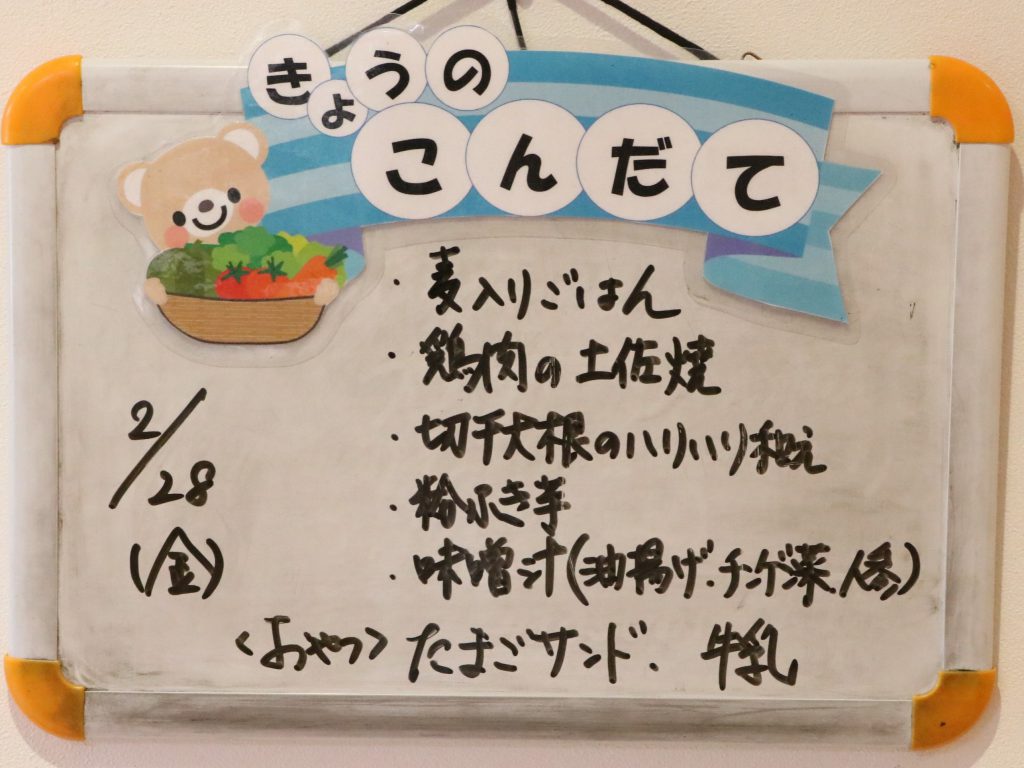 きょうの
こんだて
・麦入りごはん
・鶏肉の土佐焼
・切干大根のハリハリ和え
・粉ふき芋
・味噌汁(油揚げ.チンゲン菜.人参)
<おやつ>たまごサンド. 牛乳
2/28
(金)